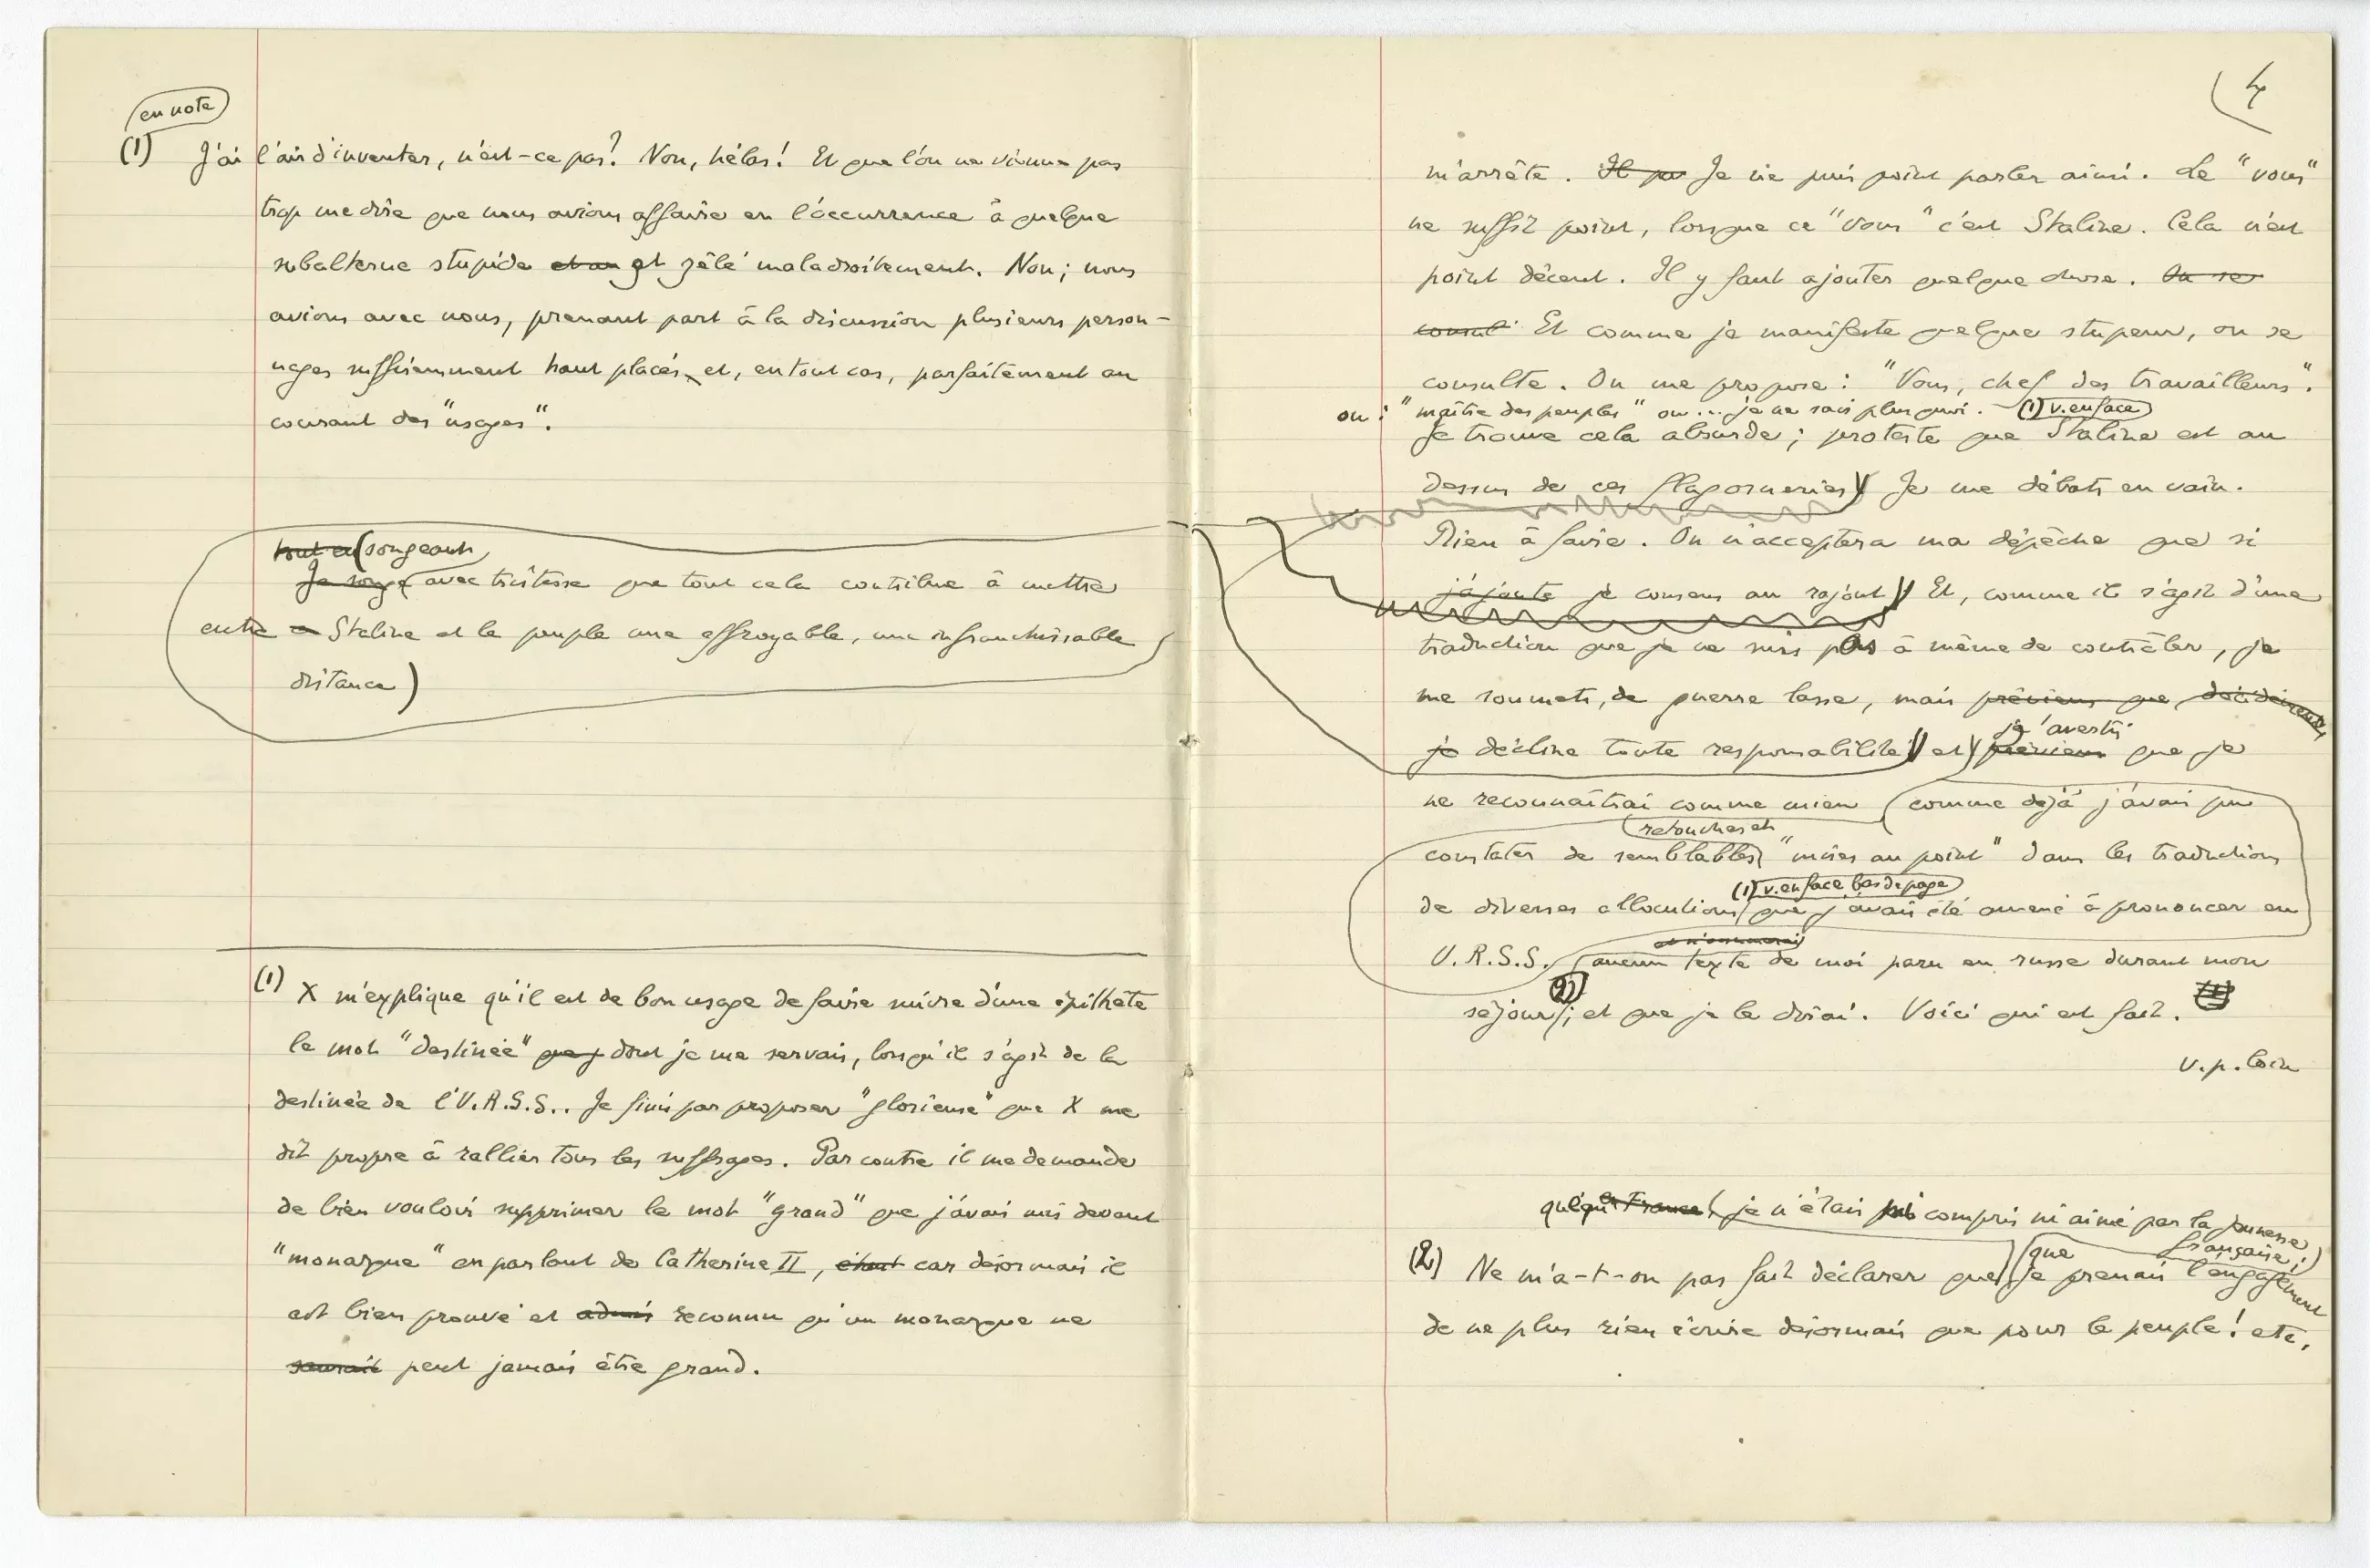 en note
(1) J'ai l'air d'inventer, n'est-ce pas? Non, hélas! Et que l'on ne vienne pas
trop me dire que nous avions affaire en l'occurrence à quelque
subalterne stupide et zêlé maladroitement. Non; nous
avions avec nous, prenant part à la discussion plusieurs person-
nages suffisamment haut placés, et, en tout cas, parfaitement au
courant des "usages".
tout en songeant
Je songe avec tristesse que tout cela contribue à mettre
entre Staline et le peuple une effroyable, une infranchissable
distance)
(1) X m'explique qu'il est de bon usage de faire suivre d'une épithète
le mot "destinée" que j dont je me servais, lorsqu'il s'agit de la
destinée de l'U.R.S.S.. Je finis par proposer "glorieuse" que X me
dit propre à rallier tous les suffrages. Par contre il me demande
de bien vouloir supprimer le mot "grand" que j'avais mis devant
"monarque" en parlant de Catherine II, étant car désormais il
est bien prouvé et admis reconnu qu'un monarque ne
saurait peut jamais être grand.
4
m'arrête. Je ne puis point parler ainsi. Le "vous"
ne suffit point, lorsque ce "vous" c'est Staline. Cela n'est
point décent. Il y faut ajouter quelque chose. On se
consul Et comme je manifeste quelque stupeur, on se
consulte. On me propose: "Vous, chef des travailleurs".
ou: "maître des peuples" ou... je ne sais plus quoi. (1) v. en face
Je trouve cela absurde; proteste que Staline est au
dessus de ces flagorneries) Je me débats en vain.
Rien à faire. On n'acceptera ma dépêche que si
j'ajoute je consens au rajout) Et, comme il s'agit d'une
traduction que je ne suis pas à même de contrôler, je
me soumets, de guerre lasse, mais préviens que décidément
je décline toute responsabilité) et) préviens que je
j'avertis
ne reconnaîtrai comme mien (comme déjà j'avais pu
retouches et
constater de semblables "mises au point" dans les traductions
(1) v. en face bas de page
de diverses allocutions que j'avais été amené à prononcer en
U.R.S.S. aucun texte de moi paru en russe durant mon
séjour (2); et que je le dirai. Voici qui est fait.
v. p. loin
qu'en France, je n'étais ni compris ni aimé par la jeunesse
française;
(2) Ne m'a-t-on pas fait déclarer que) (que je prenais l'engagement
de ne plus rien écrire désormais que pour le peuple! etc.